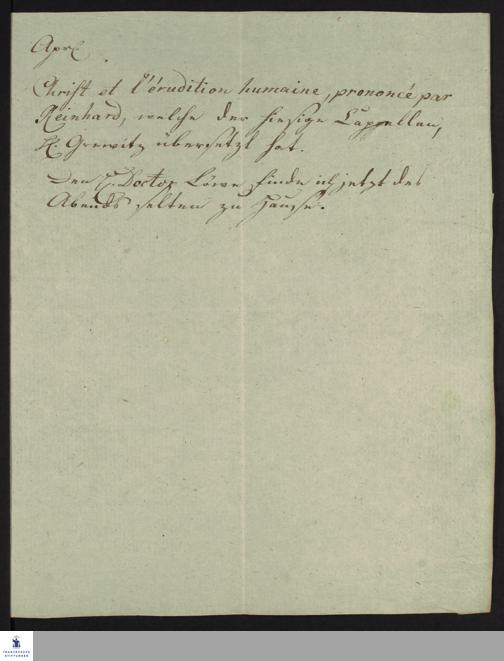 Christ et l'érudition humaine, prononcé par
Reinhard, welche der hiesige Cappellan,
H. Grewitz übersetzt hat.
Den H. Doctor Löwe finde ich jetzt des
Abends selten zu Hause.
FRANCKESCHE
STIFTUNGEN